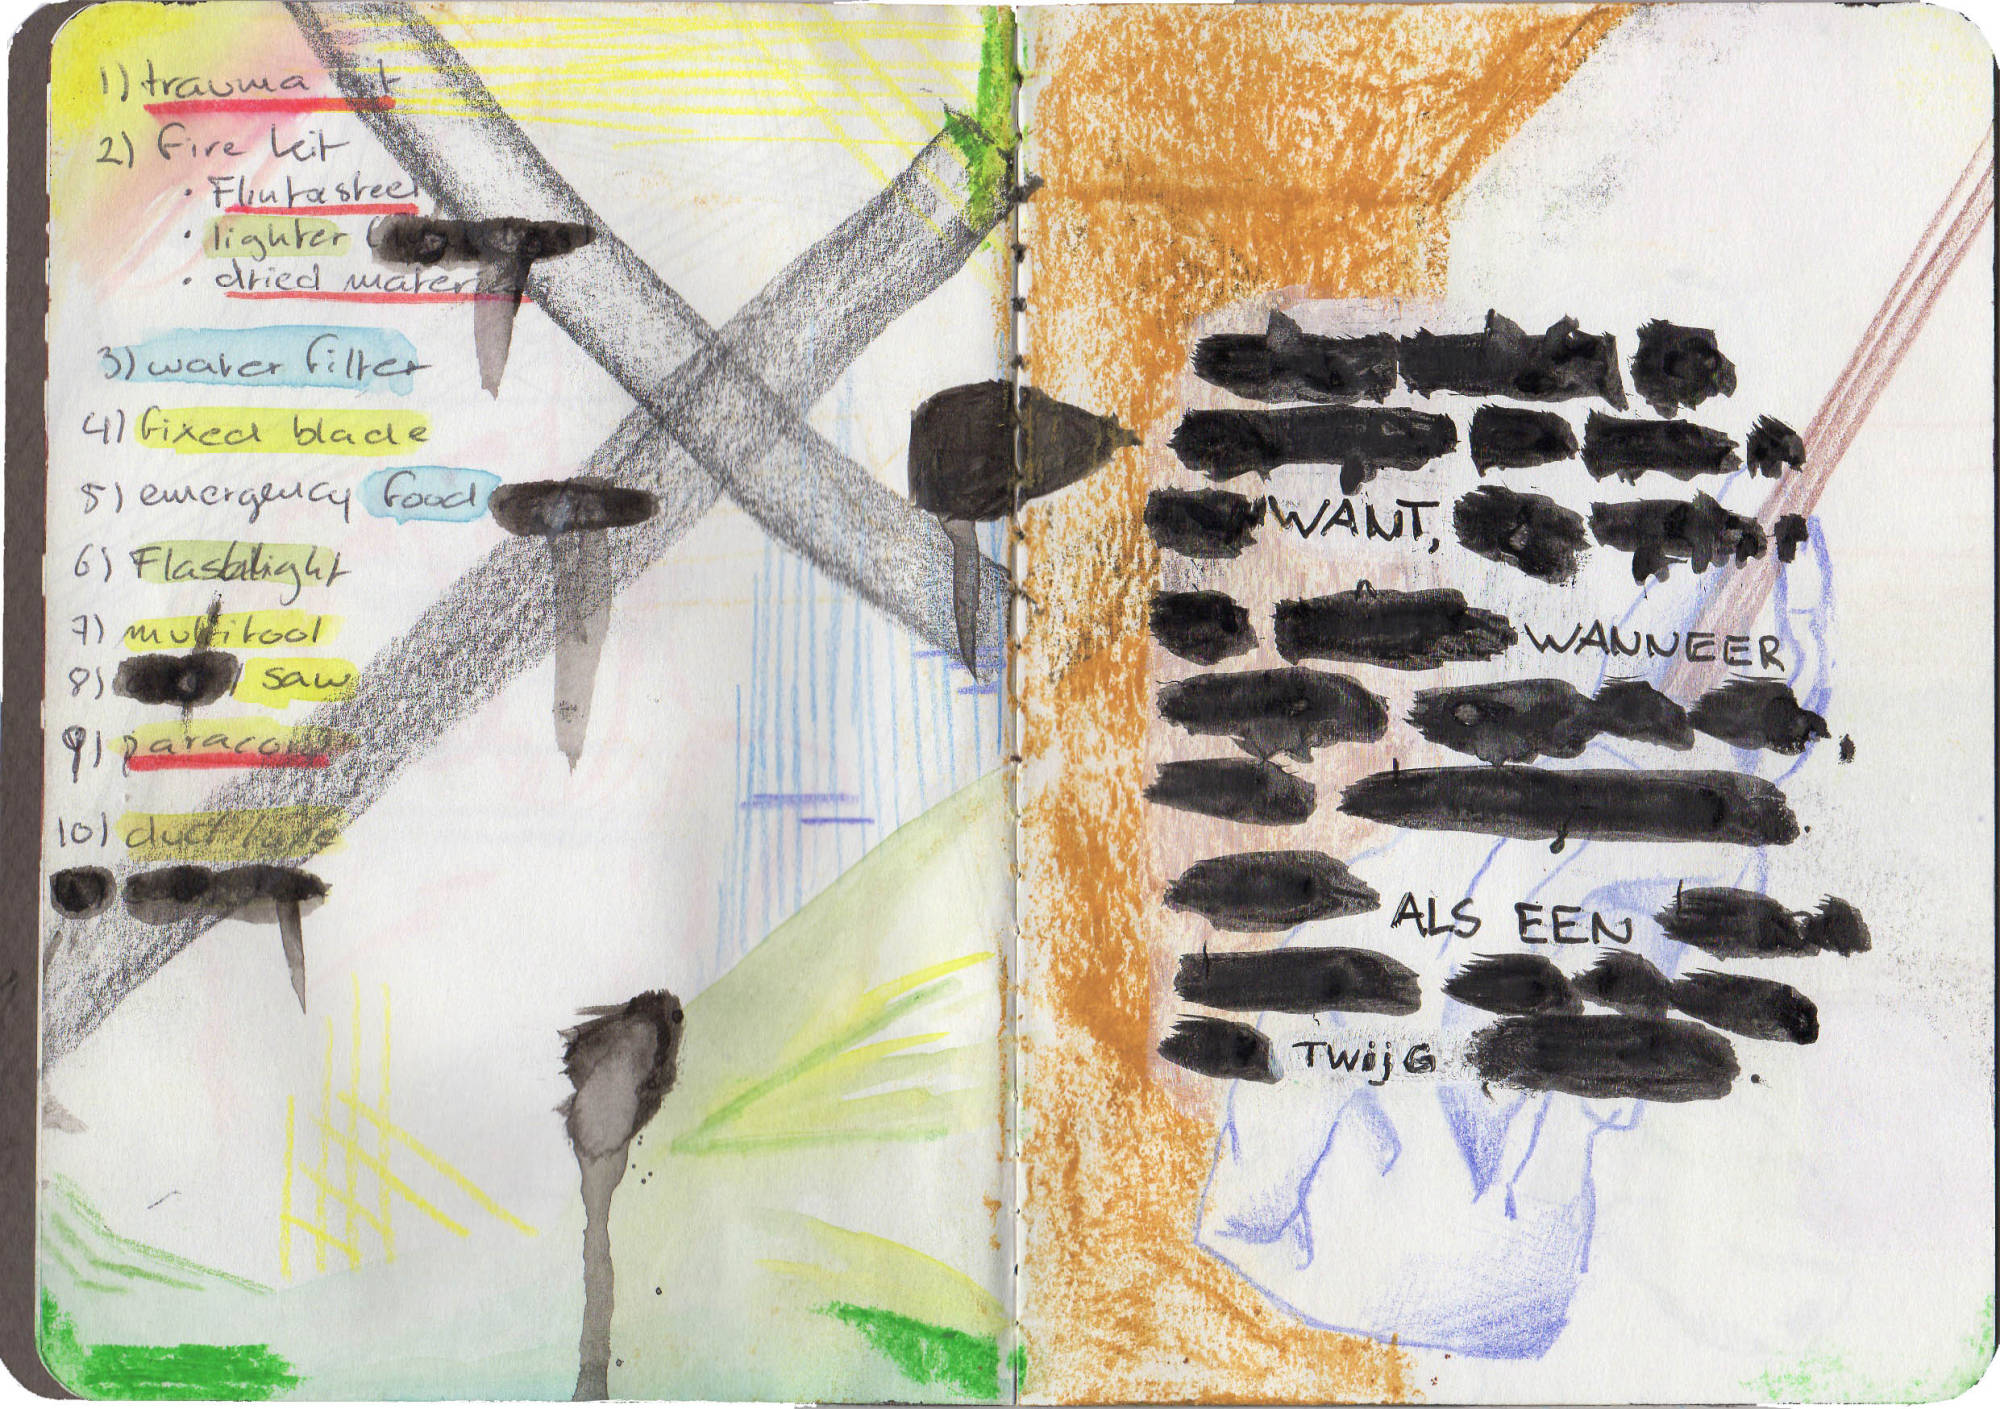 1) trauma kit
2) Fire kit
• Flint & steel
• lighter (
• dried material
3) water filter
4) fixed blade
5) emergency food
6) Flashlight
7) multitool
8) / saw
9) paracord
10) duct tape
WANT,
WANNEER
ALS EEN
TWijG